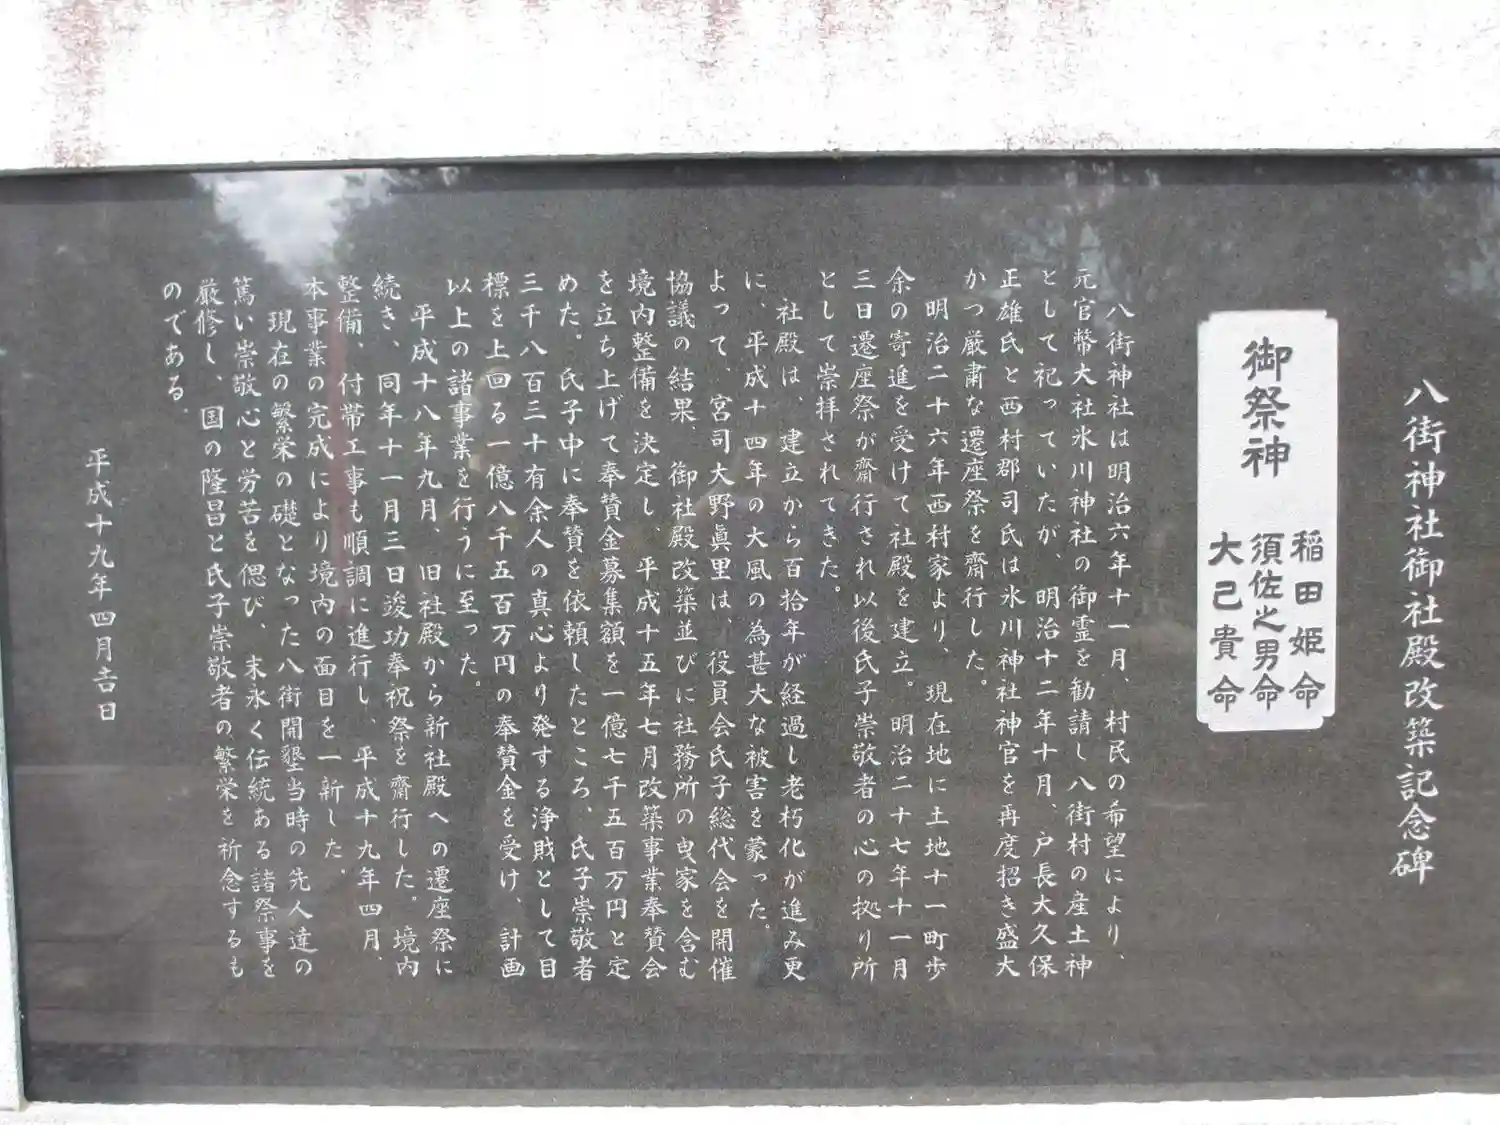 八街神社御社殿改築記念碑
御祭神
稲田姫命
須佐之男命
大己貴命
八街神社は明治六年十一月、村民の希望により、
元官幣大社氷川神社の御霊を勧請し八街村の産土神
として祀っていたが、明治十二年十月、戸長大久保
正雄氏と西村郡司氏は氷川神社神官を再度招き盛大
かつ厳粛な遷座祭を齋行した。
明治二十六年西村家より、現在地に土地十一町歩
余の寄進を受けて社殿を建立。明治二十七年十一月
三日遷座祭が齋行され以後氏子崇敬者の心の拠り所
として崇拝されてきた。
社殿は、建立から百拾年が経過し老朽化が進み更
に、平成十四年の大風の為甚大な被害を蒙った。
よって、宮司大野眞里は、役員会氏子総代会を開催
協議の結果、御社殿改築並びに社務所の曳家を含む
境内整備を決定し、平成十五年七月改築事業奉賛会
を立ち上げて奉賛金募集額を一億七千五百万円と定
めた。氏子中に奉賛を依頼したところ、氏子崇敬者
三千八百三十有余人の真心より発する浄財として目
標を上回る一億八千五百万円の奉賛金を受け、計画
以上の諸事業を行うに至った。
平成十八年九月、旧社殿から新社殿への遷座祭に
続き、同年十一月三日竣功奉祝祭を齋行した。境内
整備、付帯工事も順調に進行し、平成十九年四月、
本事業の完成により境内の面目を一新した。
現在の繁栄の礎となった八街開墾当時の先人達の
篤い崇敬心と労苦を偲び、末永く伝統ある諸祭事を
厳修し、国の隆昌と氏子崇敬者の繁栄を祈念するも
のである。
平成十九年四月吉日